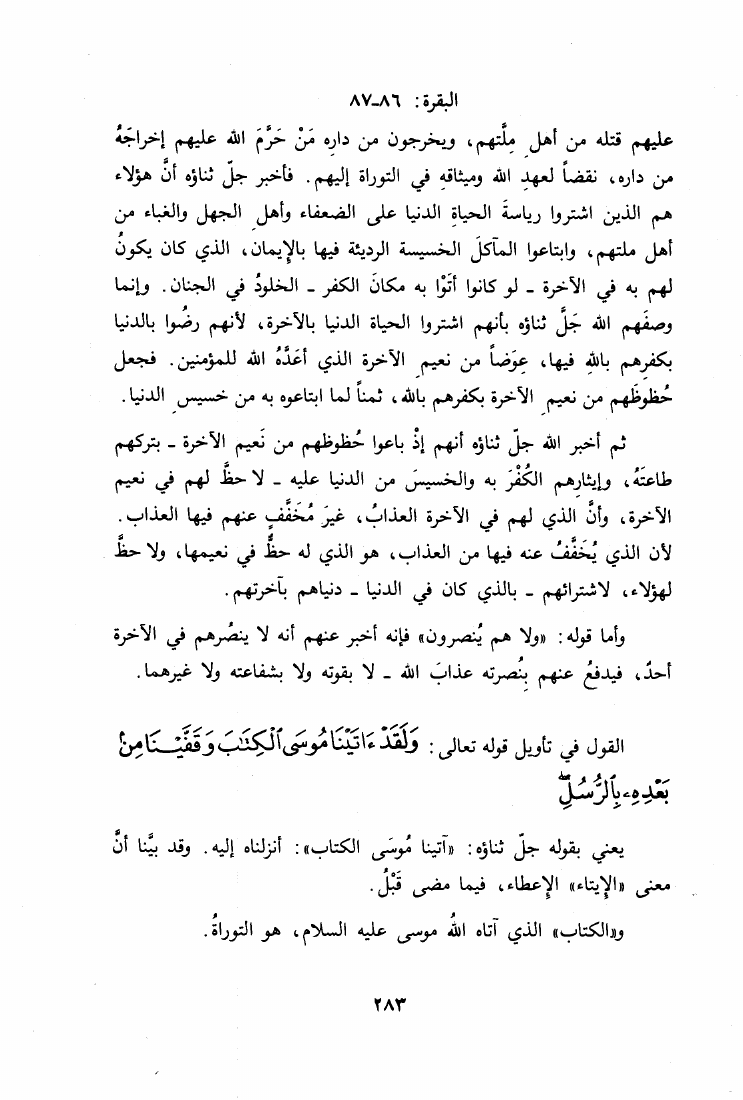 البقرة: ٨٦-٨٧
عليهم قتله من أهل مِلَّتهم، ويخرجون من داره مَنْ حَرَّمَ الله عليهم إخراجَهُ
من داره، نقضاً لعهدِ الله وميثاقهِ في التوراة إليهم. فأخبر جلّ ثناؤه أنَّ هؤلاء
هم الذين اشتروا رياسةَ الحياةِ الدنيا على الضعفاء وأهل الجهل والغباء من
أهل ملتهم، وابتاعوا المآكلَ الخسيسة الرديئة فيها بالإيمان، الذي كان يكونُ
لهم به في الآخرة - لو كانوا أتَوْا به مكانَ الكفر - الخلودُ في الجنان. وإنما
وصفَهم الله جَلَّ ثناؤه بأنهم اشتروا الحياة الدنيا بالآخرة، لأنهم رضُوا بالدنيا
بكفرهم باللهِ فيها، عِوَضاً من نعيم الآخرة الذي أعَدَّهُ الله للمؤمنين. فجعل
حُظوظَهم من نعيم الآخرة بكفرهم بالله، ثمناً لما ابتاعوه به من خسيس الدنيا.
ثم أخبر الله جلّ ثناؤه أنهم إذْ باعوا حُظوظهم من نَعيم الآخرة - بتركهم
طاعتَهُ، وإيثارِهم الكُفْرَ به والخسيسَ من الدنيا عليه - لا حظَّ لهم في نعيم
الآخرة، وأنَّ الذي لهم في الآخرة العذابُ، غيرَ مُخَفَّفٍ عنهم فيها العذاب.
لأن الذي يُخَفَّفُ عنه فيها من العذاب، هو الذي له حظٌّ في نعيمها، ولا حظَّ
لهؤلاء، لاشترائهم - بالذي كان في الدنيا - دنياهم بآخرتهم.
وأما قوله: «ولا هم يُنصرون» فإنه أخبر عنهم أنه لا ينصُرهم في الآخرة
أحدٌ، فيدفعُ عنهم بِنُصرته عذابَ الله - لا بقوته ولا بشفاعته ولا غيرهما.
القول في تأويل قوله تعالى: وَلَقَدْ ءَاتَيْنَا مُوسَى ٱلْكِتَٰبَ وَقَفَّيْنَا مِنۢ
بَعْدِهِۦ بِٱلرُّسُلِۖ
يعني بقوله جلّ ثناؤه: «آتينا مُوسَى الكتاب»: أنزلناه إليه. وقد بيَّنا أنَّ
معنى «الإيتاء» الإعطاء، فيما مضى قَبْلُ.
و«الكتاب» الذي آتاه اللهُ موسى عليه السلام، هو التوراةُ.
٢٨٣